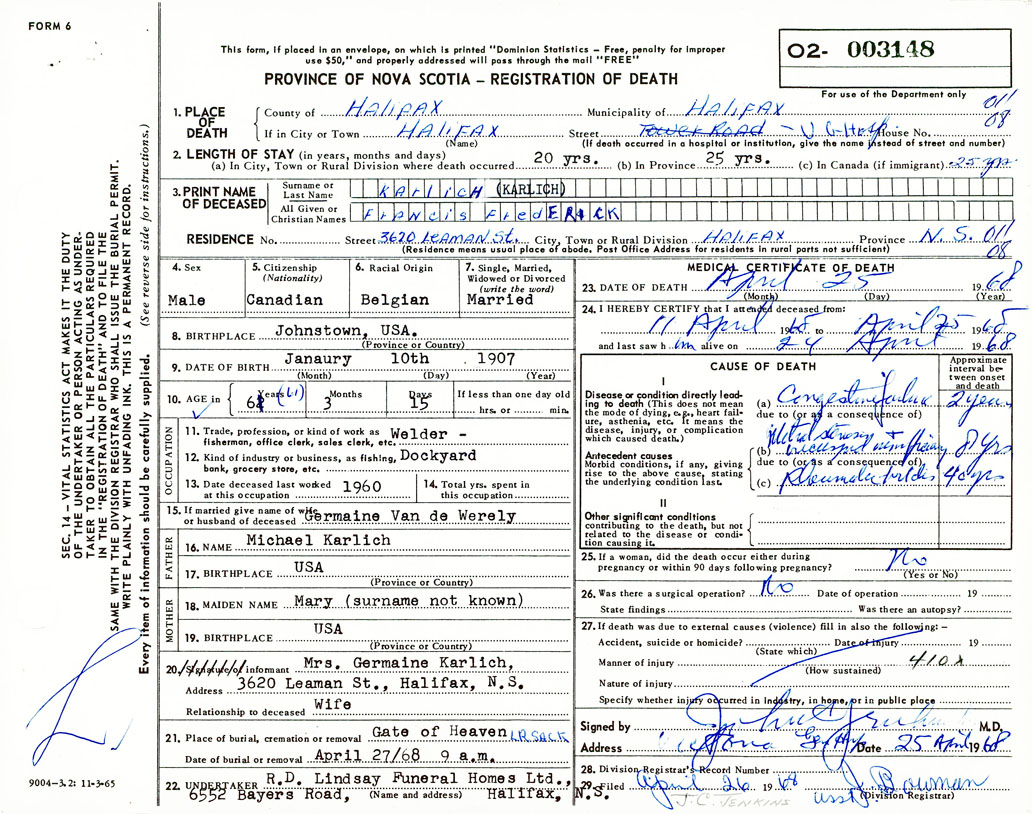 FORM 6
O2- 003148
This form, if placed in an envelope, on which is printed "Dominion Statistics – Free, penalty for improper
use $50," and properly addressed will pass through the mail "FREE"
PROVINCE OF NOVA SCOTIA – REGISTRATION OF DEATH
For use of the Department only
011
08
1. PLACE OF DEATH
County of HALIFAX Municipality of HALIFAX
If in City or Town HALIFAX Street Tower Road – V G Hosp House No.
(Name) (If death occurred in a hospital or institution, give the name instead of street and number)
2. LENGTH OF STAY (in years, months and days)
(a) In City, Town or Rural Division where death occurred 20 yrs. (b) In Province 25 yrs. (c) In Canada (if immigrant) 25 yrs
3. PRINT NAME OF DECEASED
Surname or Last Name KARLICH (KARLICH)
All Given or Christian Names Francis FredERICK
RESIDENCE No. Street 3620 LEAMAN St. City, Town or Rural Division HALIFAX Province N.S. 011
08
(Residence means usual place of abode. Post Office Address for residents in rural parts not sufficient)
4. Sex
Male
5. Citizenship
(Nationality)
Canadian
6. Racial Origin
Belgian
7. Single, Married,
Widowed or Divorced
(write the word)
Married
8. BIRTHPLACE Johnstown, USA.
(Province or Country)
9. DATE OF BIRTH Janaury 10th 1907
(Month) (Day) (Year)
10. AGE in Years (61) 3 Months 15 Days
If less than one day old
hrs. or min.
OCCUPATION
11. Trade, profession, or kind of work as
fisherman, office clerk, sales clerk, etc. Welder -
12. Kind of industry or business, as fishing,
bank, grocery store, etc. Dockyard
13. Date deceased last worked
at this occupation 1960
14. Total yrs. spent in
this occupation
15. If married give name of wife
or husband of deceased Germaine Van de Werely
FATHER
16. NAME Michael Karlich
17. BIRTHPLACE USA
(Province or Country)
MOTHER
18. MAIDEN NAME Mary (surname not known)
19. BIRTHPLACE USA
(Province or Country)
20. Signature of informant Mrs. Germaine Karlich,
Address 3620 Leaman St., Halifax, N.S.
Relationship to deceased Wife
21. Place of burial, cremation or removal Gate of Heaven LR.SACK
Date of burial or removal April 27/68 9 a.m.
22. UNDERTAKER R.D. Lindsay Funeral Homes Ltd.,
6552 Bayers Road, (Name and address) Halifax, N.S.
MEDICAL CERTIFICATE OF DEATH
23. DATE OF DEATH April 25 1968
(Month) (Day) (Year)
24. I HEREBY CERTIFY that I attended deceased from:
11 April 1968 to April 25 1968
and last saw him alive on 24 April 1968
CAUSE OF DEATH
Approximate
interval be-
tween onset
and death
I
Disease or condition directly lead-
ing to death (This does not mean
the mode of dying, e.g., heart fail-
ure, asthenia, etc. It means the
disease, injury, or complication
which caused death.)
(a) Congestive failure 2 years
due to (or as a consequence of)
Antecedent causes
Morbid conditions, if any, giving
rise to the above cause, stating
the underlying condition last.
(b) Mitral stenosis 8 yrs
due to (or as a consequence of)
(c) Rheumatic 40 yrs
II
Other significant conditions
contributing to the death, but not
related to the disease or condi-
tion causing it.
25. If a woman, did the death occur either during
pregnancy or within 90 days following pregnancy? No
(Yes or No)
26. Was there a surgical operation? No Date of operation 19
State findings Was there an autopsy?
27. If death was due to external causes (violence) fill in also the following: –
Accident, suicide or homicide? Date of injury 19
(State which)
Manner of injury 410X
(How sustained)
Nature of injury
Specify whether injury occurred in industry, in home, or in public place
Signed by M.D.
Address Victoria Gen Date 25 April 1968
28. Division Registrar's Record Number
29. Filed April 26 1968 J. Bowman
asst (Division Registrar)
J.C. JENKINS
SEC. 14 – VITAL STATISTICS ACT MAKES IT THE DUTY
OF THE UNDERTAKER OR PERSON ACTING AS UNDER-
TAKER TO OBTAIN ALL THE PARTICULARS REQUIRED
IN THE "REGISTRATION OF DEATH" AND TO FILE THE
SAME WITH THE DIVISION REGISTRAR WHO SHALL ISSUE THE BURIAL PERMIT.
WRITE PLAINLY WITH UNFADING INK. THIS IS A PERMANENT RECORD.
Every item of information should be carefully supplied. (See reverse side for instructions.)
9004–3.2: 11-3-65